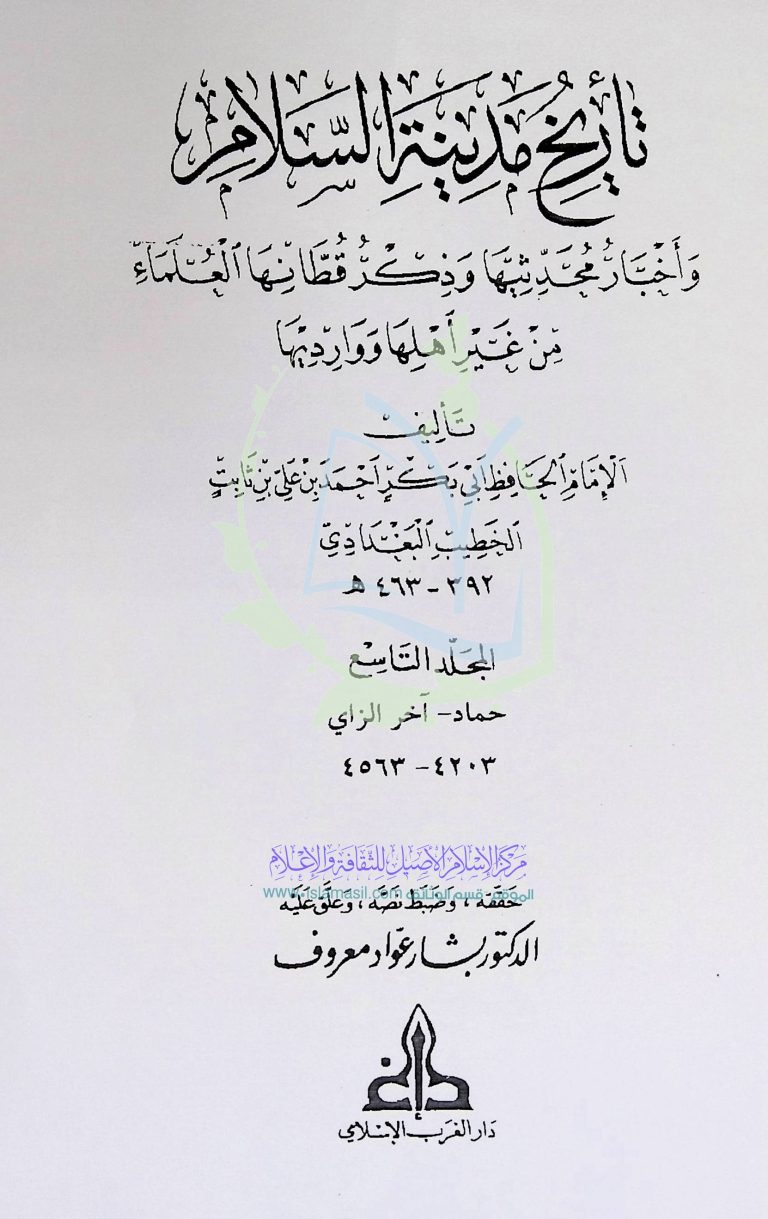 تَأْرِيخُ مَدِينَةِ السَّلَامِ
وَأَخْبَارُ مُحَدِّثِيهَا وَذِكْرُ قُطَّانِهَا الْعُلَمَاءِ
مِنْ غَيْرِ أَهْلِهَا وَوَارِدِيهَا
تَأْلِيفُ
الْإِمَامِ الْحَافِظِ أَبِي بَكْرٍ أَحْمَدَ بْنِ عَلِيِّ بْنِ ثَابِتٍ
الخَطِيبِ الْبَغْدَادِيِّ
٣٩٢ - ٤٦٣ هـ
المجلّد التَاسِع
حماد - آخر الزاي
٤٢٠٣ - ٤٥٦٣
مركز الإسلام الأصيل للثقافة والإعلام
الموقع: قسم الوثائق www.islamasil.com
حَقّقَهُ، وَضَبَطَ نَصَّهُ، وَعَلّقَ عَلَيْه
الدكتور بشار عوّاد معروف
دار الغرب الإسلامي